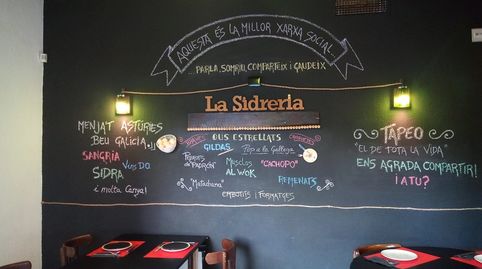 AQUESTA ÉS LA MILLOR XARXA SOCIAL
...PARLA, SOMRIU, COMPARTEIX I GAUDEIX
La Sidreria
MENJAT ASTÚRIES
BEU GALICIA
SANGRÍA
VOLS DO
SIDRA
i molta Canya!
OUS ESTRELLATS
GILDAS
Pop a la Gallega
PEBROTS DE PADRÓN
Musclos AL WOK
"CACHOPO"
"Matachana"
REMENATS
EMBOTITS i FORMATGES
TAPEO
"EL DE TOTA LA VIDA"
ENS AGRADA COMPARTIR!
I A TU?